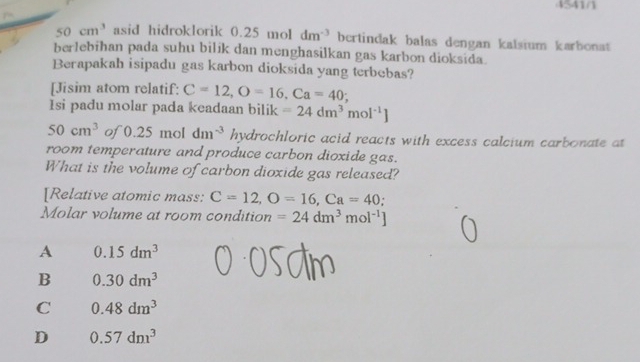 4541/1
50 cm³ asid hidroklorik 0.25 mol dm⁻³ bertindak balas dengan kalsium karbonat
berlebihan pada suhu bilik dan menghasilkan gas karbon dioksida.
Berapakah isipadu gas karbon dioksida yang terbebas?
[Jisim atom relatif: C = 12, O = 16, Ca = 40;
Isi padu molar pada keadaan bilik = 24 dm³ mol⁻¹]
50 cm³ of 0.25 mol dm⁻³ hydrochloric acid reacts with excess calcium carbonate at
room temperature and produce carbon dioxide gas.
What is the volume of carbon dioxide gas released?
[Relative atomic mass: C = 12, O = 16, Ca = 40;
Molar volume at room condition = 24 dm³ mol⁻¹]
0
A 0.15 dm³
0.05dm
B 0.30 dm³
C 0.48 dm³
D 0.57 dm³